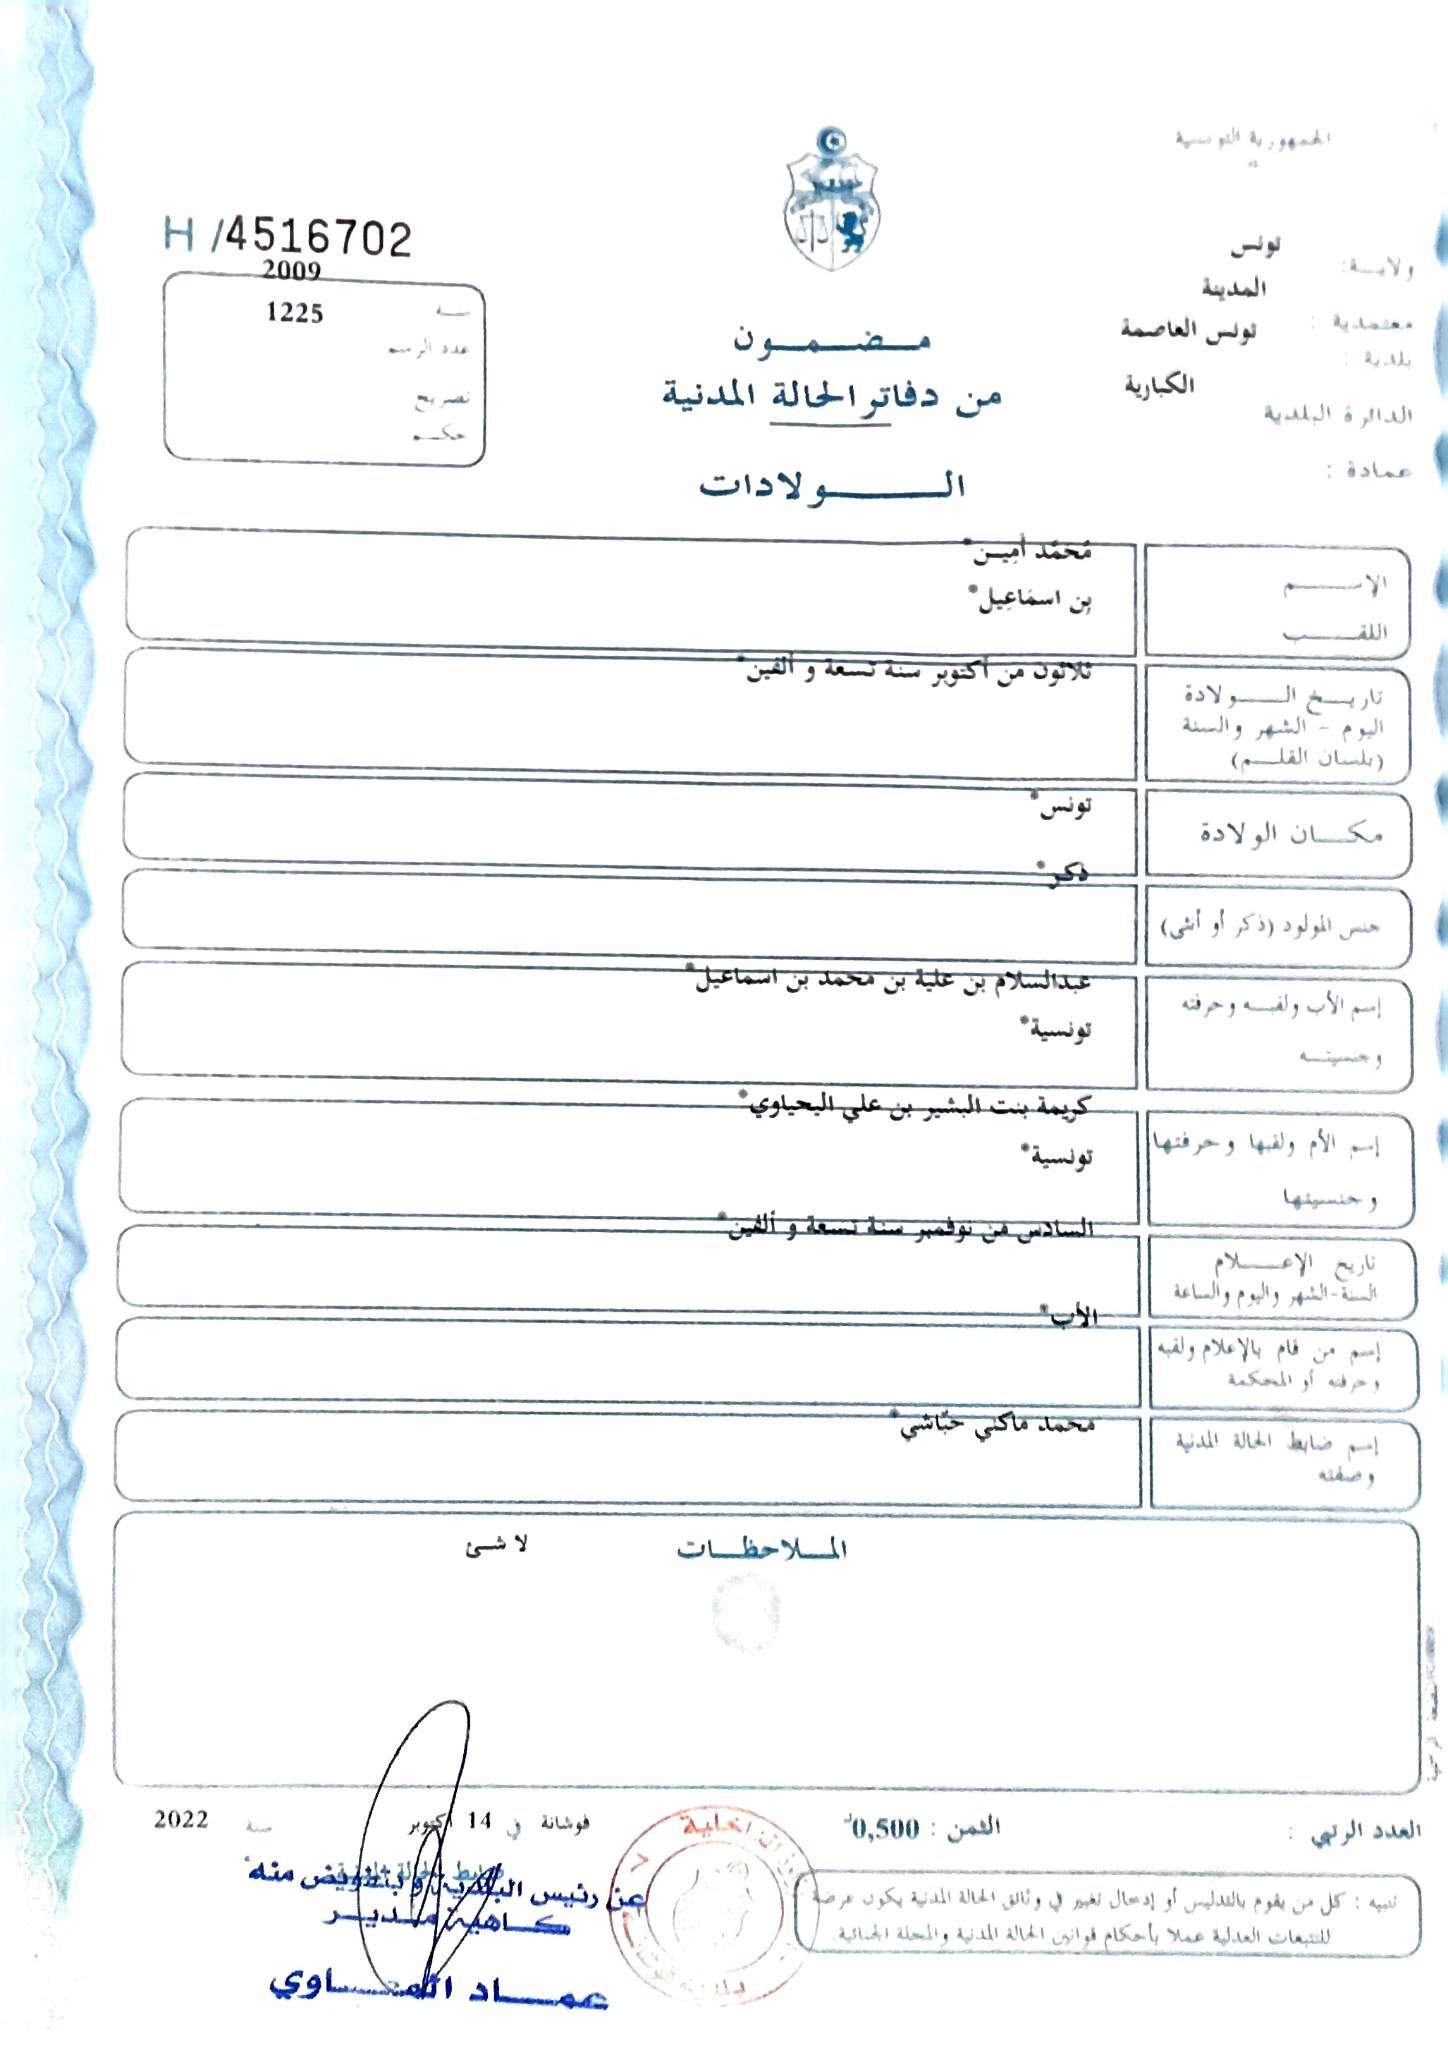 الجمهورية التونسية
H /4516702
ولاية: تونس
المدينة
معتمدية :
تونس العاصمة
بلدية :
الكبارية
الدائرة البلدية
عمادة :
2009
سنة 1225
عدد الرسم
تصريح
حكم
مضمون
من دفاتر الحالة المدنية
الولادات
الإسم
مُحَمّد أمِين*
اللقب
بِن اسمَاعِيل*
تاريخ الولادة
اليوم - الشهر والسنة
(بلسان القلم)
ثلاثون من أكتوبر سنة تسعة و ألفين*
مكان الولادة
تونس*
جنس المولود (ذكر أو أنثى)
ذكر*
إسم الأب ولقبه وحرفته
وجنسيته
عبدالسلام بن علية بن محمد بن اسماعيل*
تونسية*
إسم الأم ولقبها وحرفتها
وجنسيتها
كريمة بنت البشير بن علي اليحياوي*
تونسية*
تاريخ الإعلام
السنة-الشهر واليوم والساعة
السادس من نوفمبر سنة تسعة و ألفين*
إسم من قام بالإعلام ولقبه
وحرفته أو المحكمة
الأب*
إسم ضابط الحالة المدنية
وصفته
محمد ماكني حبّاشي*
الملاحظات
لا شئ
العدد الرتبي :
الثمن : 0,500د
فوشانة في 14 أكتوبر سنة 2022
ضابط الحالة المدنية
عن رئيس البلدية وبتفويض منه
كاهية مدير
تنبيه : كل من يقوم بالتدليس أو إدخال تغيير في وثائق الحالة المدنية يكون عرضة
للتتبعات العدلية عملا بأحكام قوانين الحالة المدنية والمجلة الجنائية.